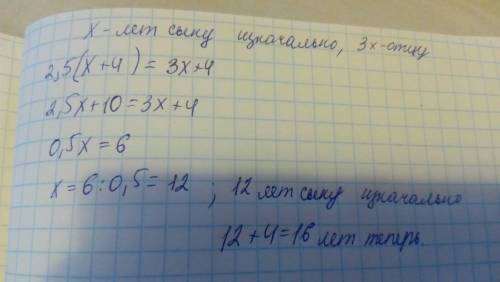 х-лет сыну изначально, 3х-отцу
2,5(х+4)=3х+4
2,5х+10=3х+4
0,5х=6
х=6:0,5=12 ; 12 лет сыну изначально
12+4=16 лет теперь.